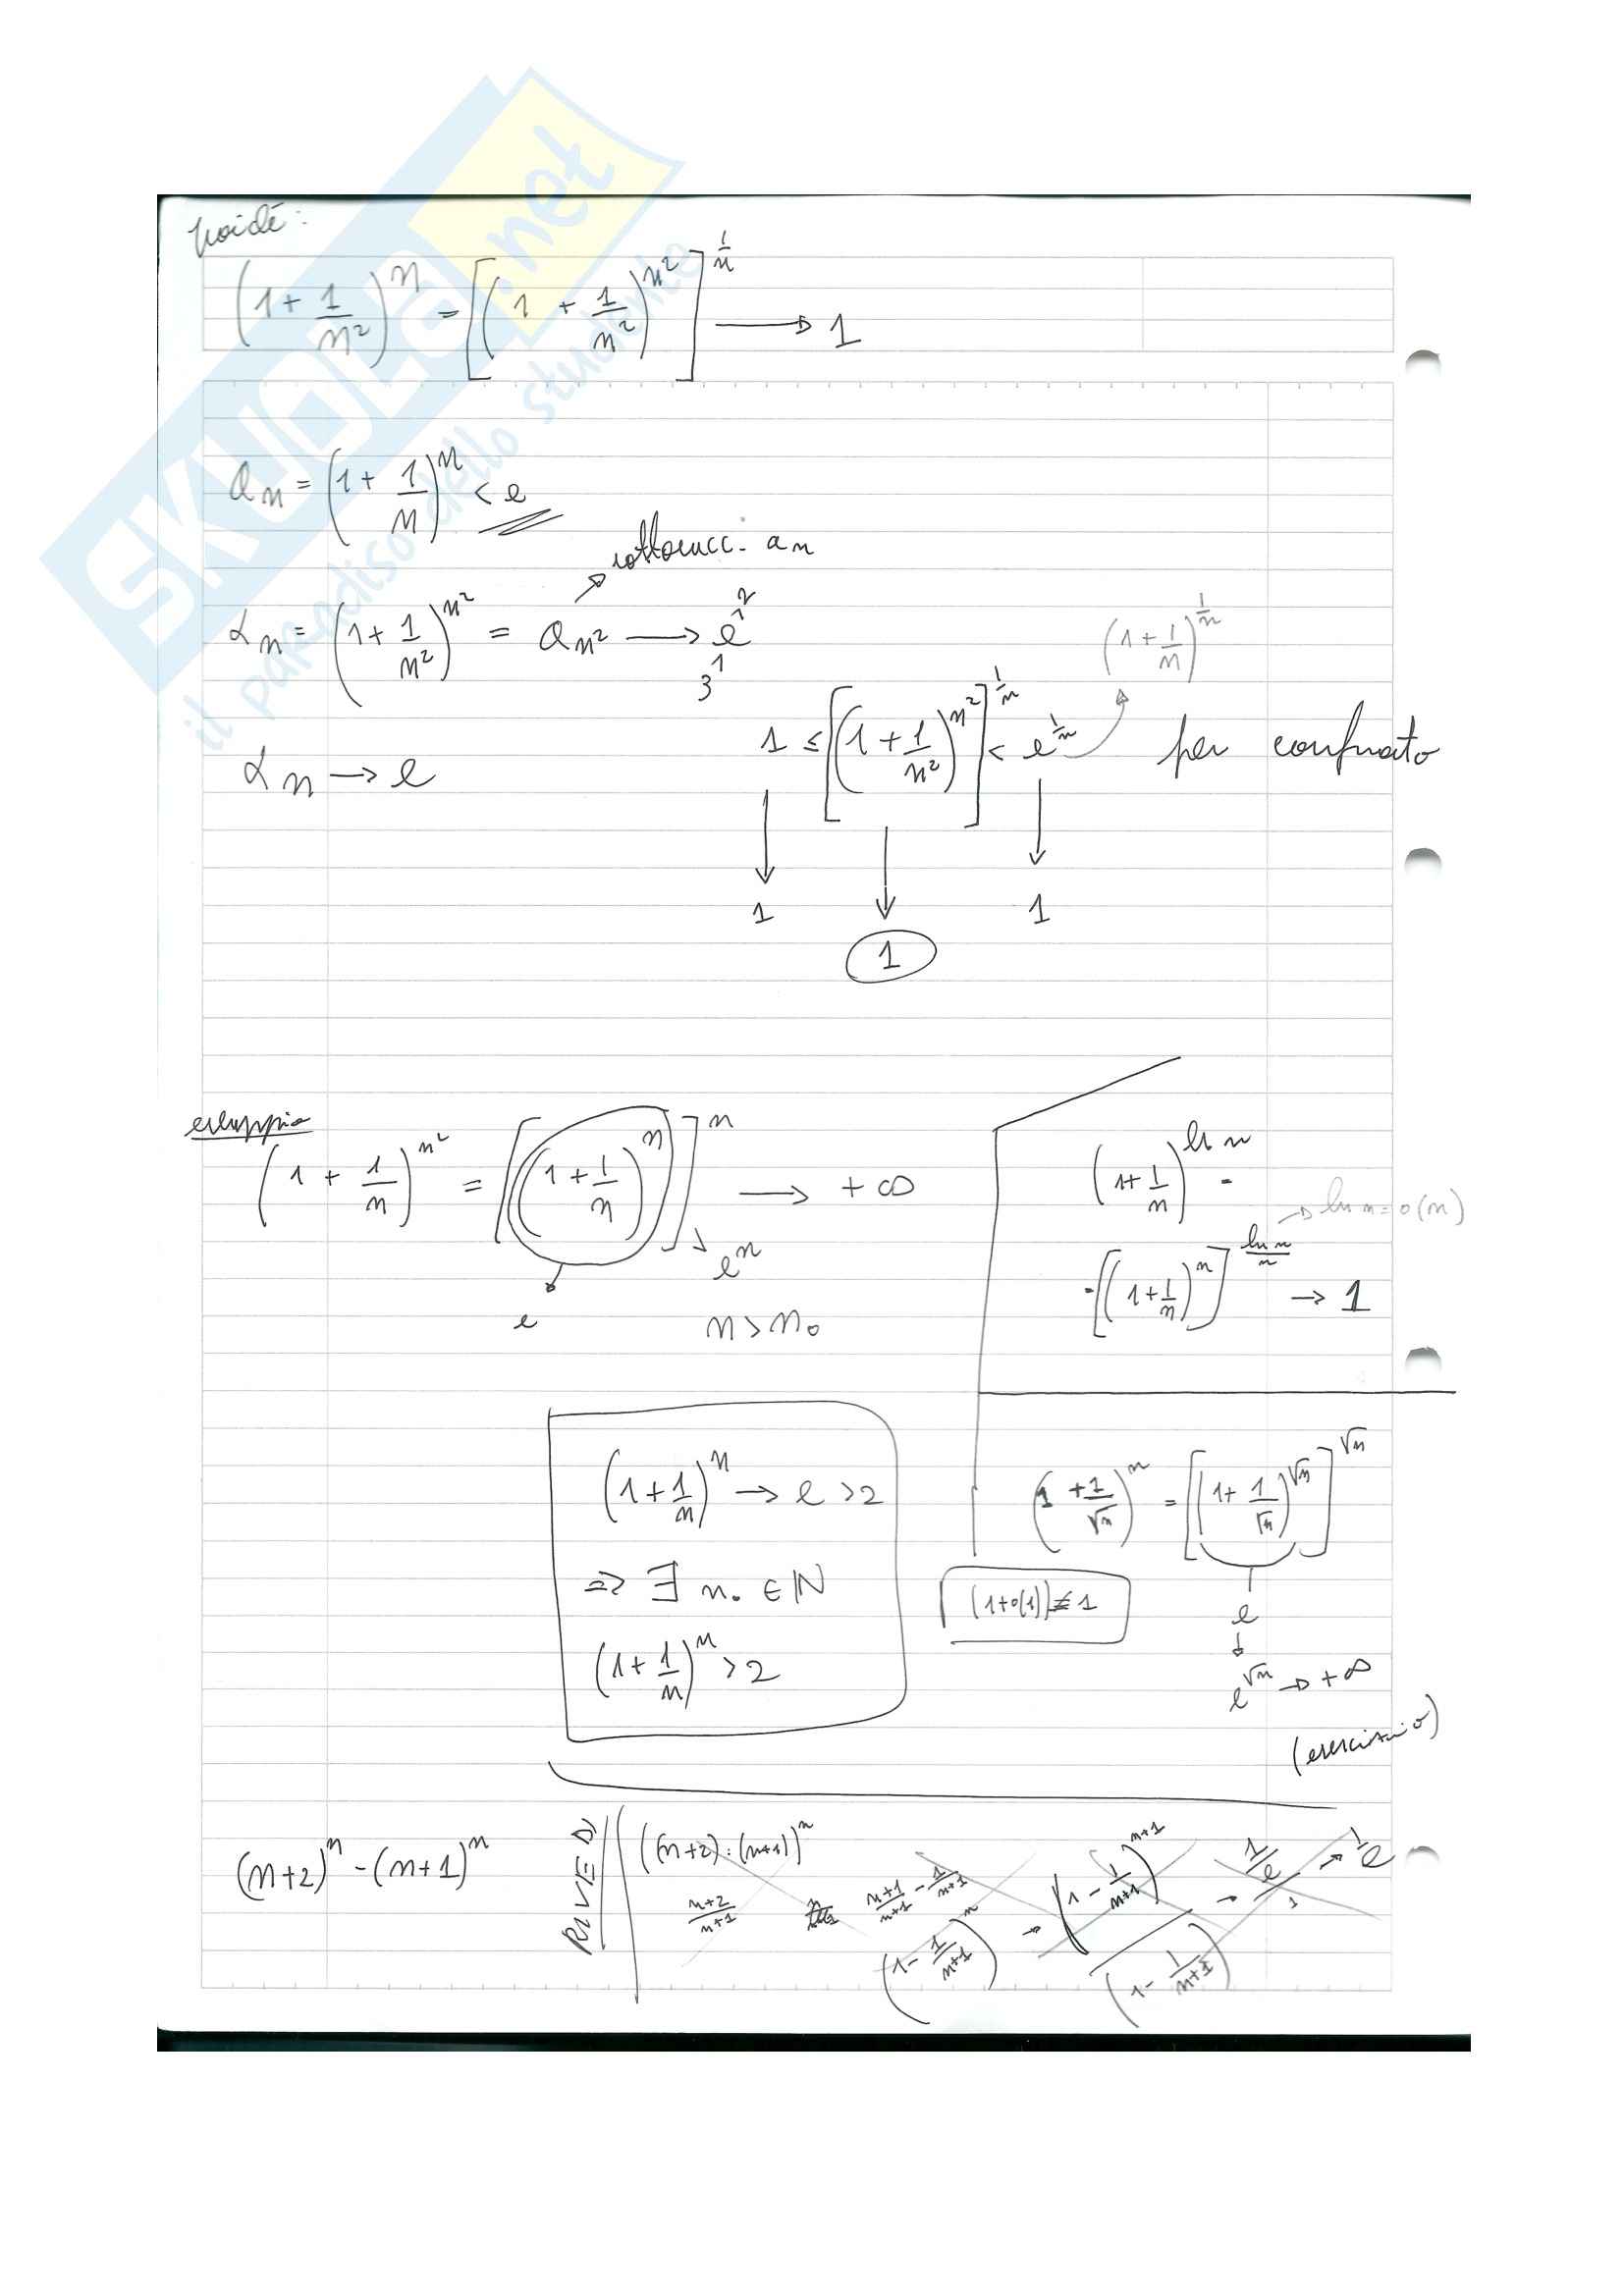 poiché:
(1 + 1/n²)^n = [(1 + 1/n²)^n²]^1/n → 1
SKUOLA.net
il paradiso dello studente
a_n = (1 + 1/n)^n < e
sottosucc. a_n
α_n = (1 + 1/n²)^n² = a_n² → e
α_n → e
1 ≤ [(1 + 1/n²)^n²]^1/n < e^1/n per confronto
(1 + 1/n)^1/n
1 1
1
esempio
(1 + 1/n)^n² = [(1 + 1/n)^n]^n → +∞
e e^n
n > n₀
(1 + 1/n)^ln n =
= [(1 + 1/n)^n]^ln n/n → 1
ln n = o(n)
(1 + 1/n)^n → e > 2
⇒ ∃ n₀ ∈ ℕ
(1 + 1/n)^n > 2
(1 + 1/√n)^n = [(1 + 1/√n)^√n]^√n
e
e^√n → +∞
(1+o(1)) ≢ 1
(esercizio)
(n+2)^n - (n+1)^n
RIVEDI
((n+2) : (n+1))^n
n+2/n+1 n+1/n+1 - 1/n+1
(1 - 1/n+1)^n → (1 - 1/n+1)^n+1 / (1 - 1/n+1) → 1/e / 1 → 1/e